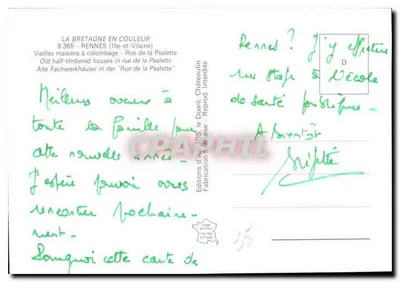 LA BRETAGNE EN COULEUR
B 366 - RENNES (Ille-et-Vilaine)
Vieilles maisons à colombage - Rue de la Psalette
Old half-timbered houses in rue de la Psalette
Alte Fachwerkhäuser in der "Rue de la Psalette"
Meilleurs voeux à
toute la famille pour
cette nouvelle année.
J'espère pouvoir vous
rencontrer prochaine-
ment.
Pourquoi cette carte de
Editions d'Art JOS, le Doaré, Châteaulin
Fabrication Française - Reprod. Interdite
CPAPHIL
Rennes ? J'y effectue
un stage à l'école
de santé publique.
A bientôt
Brigitte
D
35